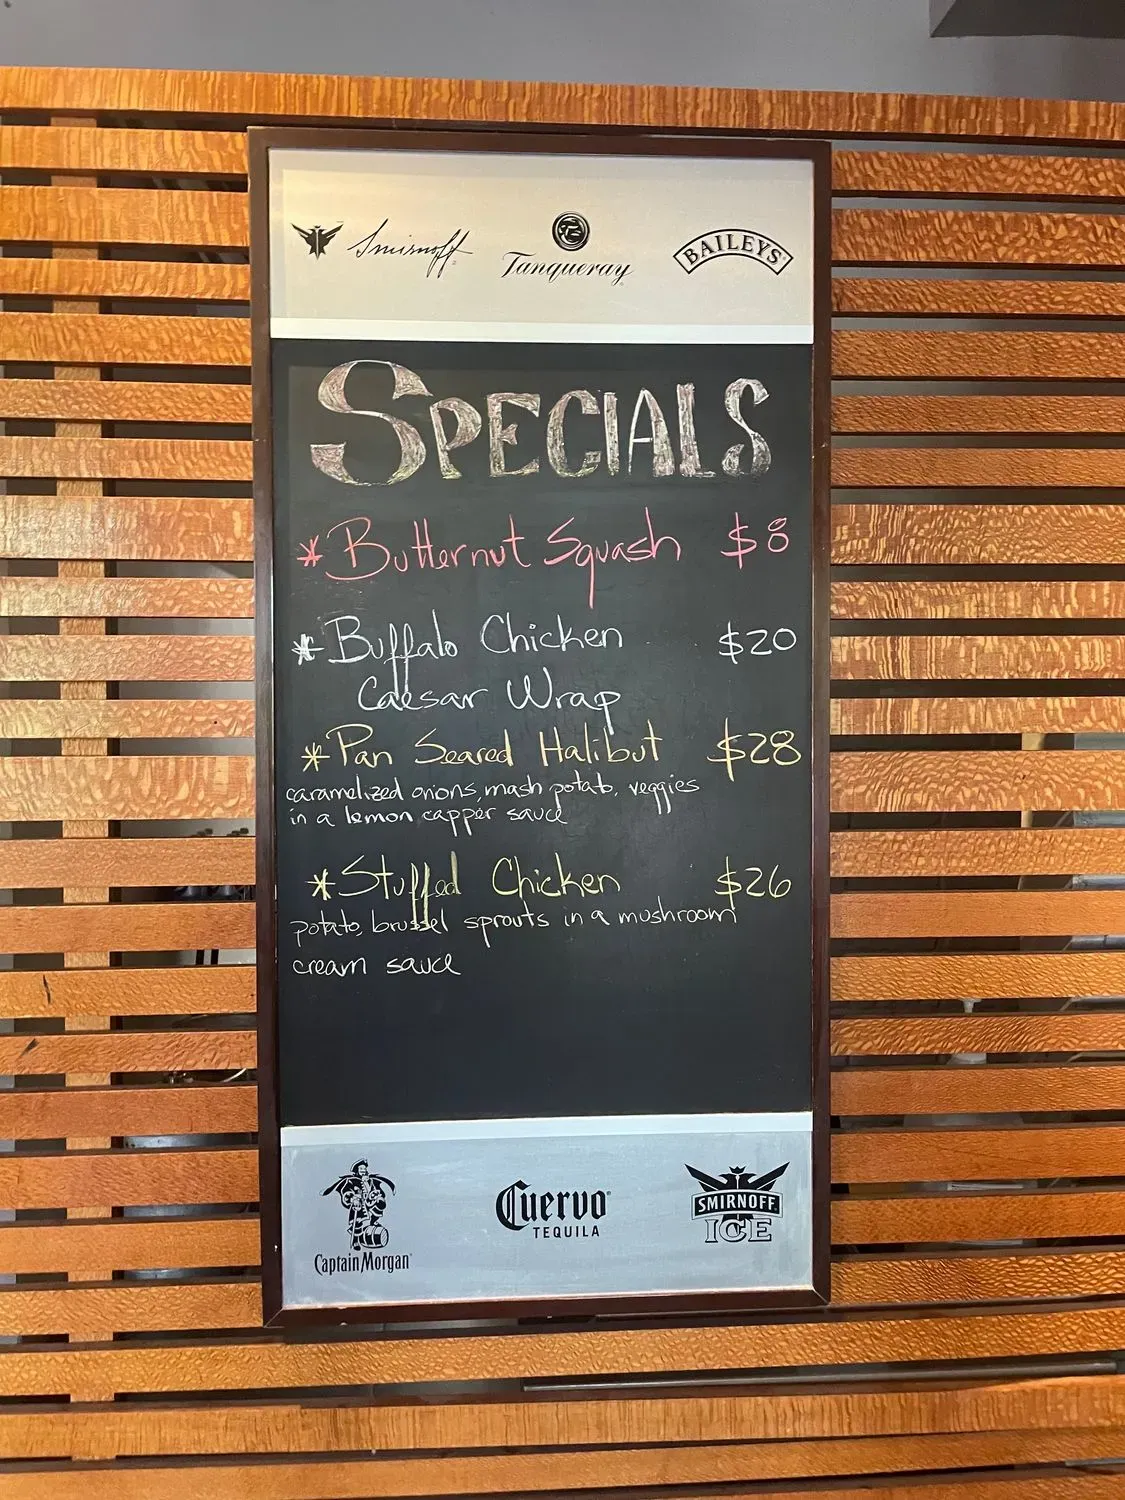 Smirnoff Tanqueray BAILEYS
SPECIALS
* Butternut Squash $8
* Buffalo Chicken $20
Caesar Wrap
* Pan Seared Halibut $28
caramelized onions, mash potato, veggies
in a lemon capper sauce
* Stuffed Chicken $26
potato, brussel sprouts in a mushroom
cream sauce
Captain Morgan
Cuervo
TEQUILA
SMIRNOFF
ICE